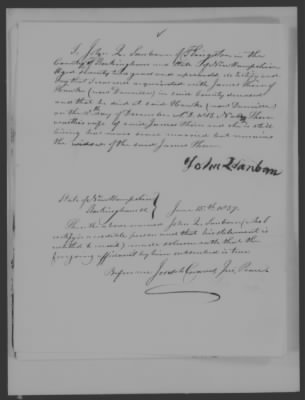 I, John L. Sanborn of Kingston in the
County of Rockingham and State of New Hampshire
aged seventy two years and upwards, do testify and
say that I was well acquainted with James Thorn of
Hawke (now Danville) in said County deceased
and that he died at said Hawke (now Danville)
on the day of December A.D. Thorn
was the wife of said James Thorn and she is still
living but has never married but remains
the widow of the said James Thorn
John L Sanborn
State of New Hampshire
Rockingham ss June 15th 1839.
Then the above named John L. Sanborn who I
certify is a credible person and that his statement is
entitled to credit, made solemn oath that the
foregoing affidavit by him subscribed is true
Before me Jus. Peace